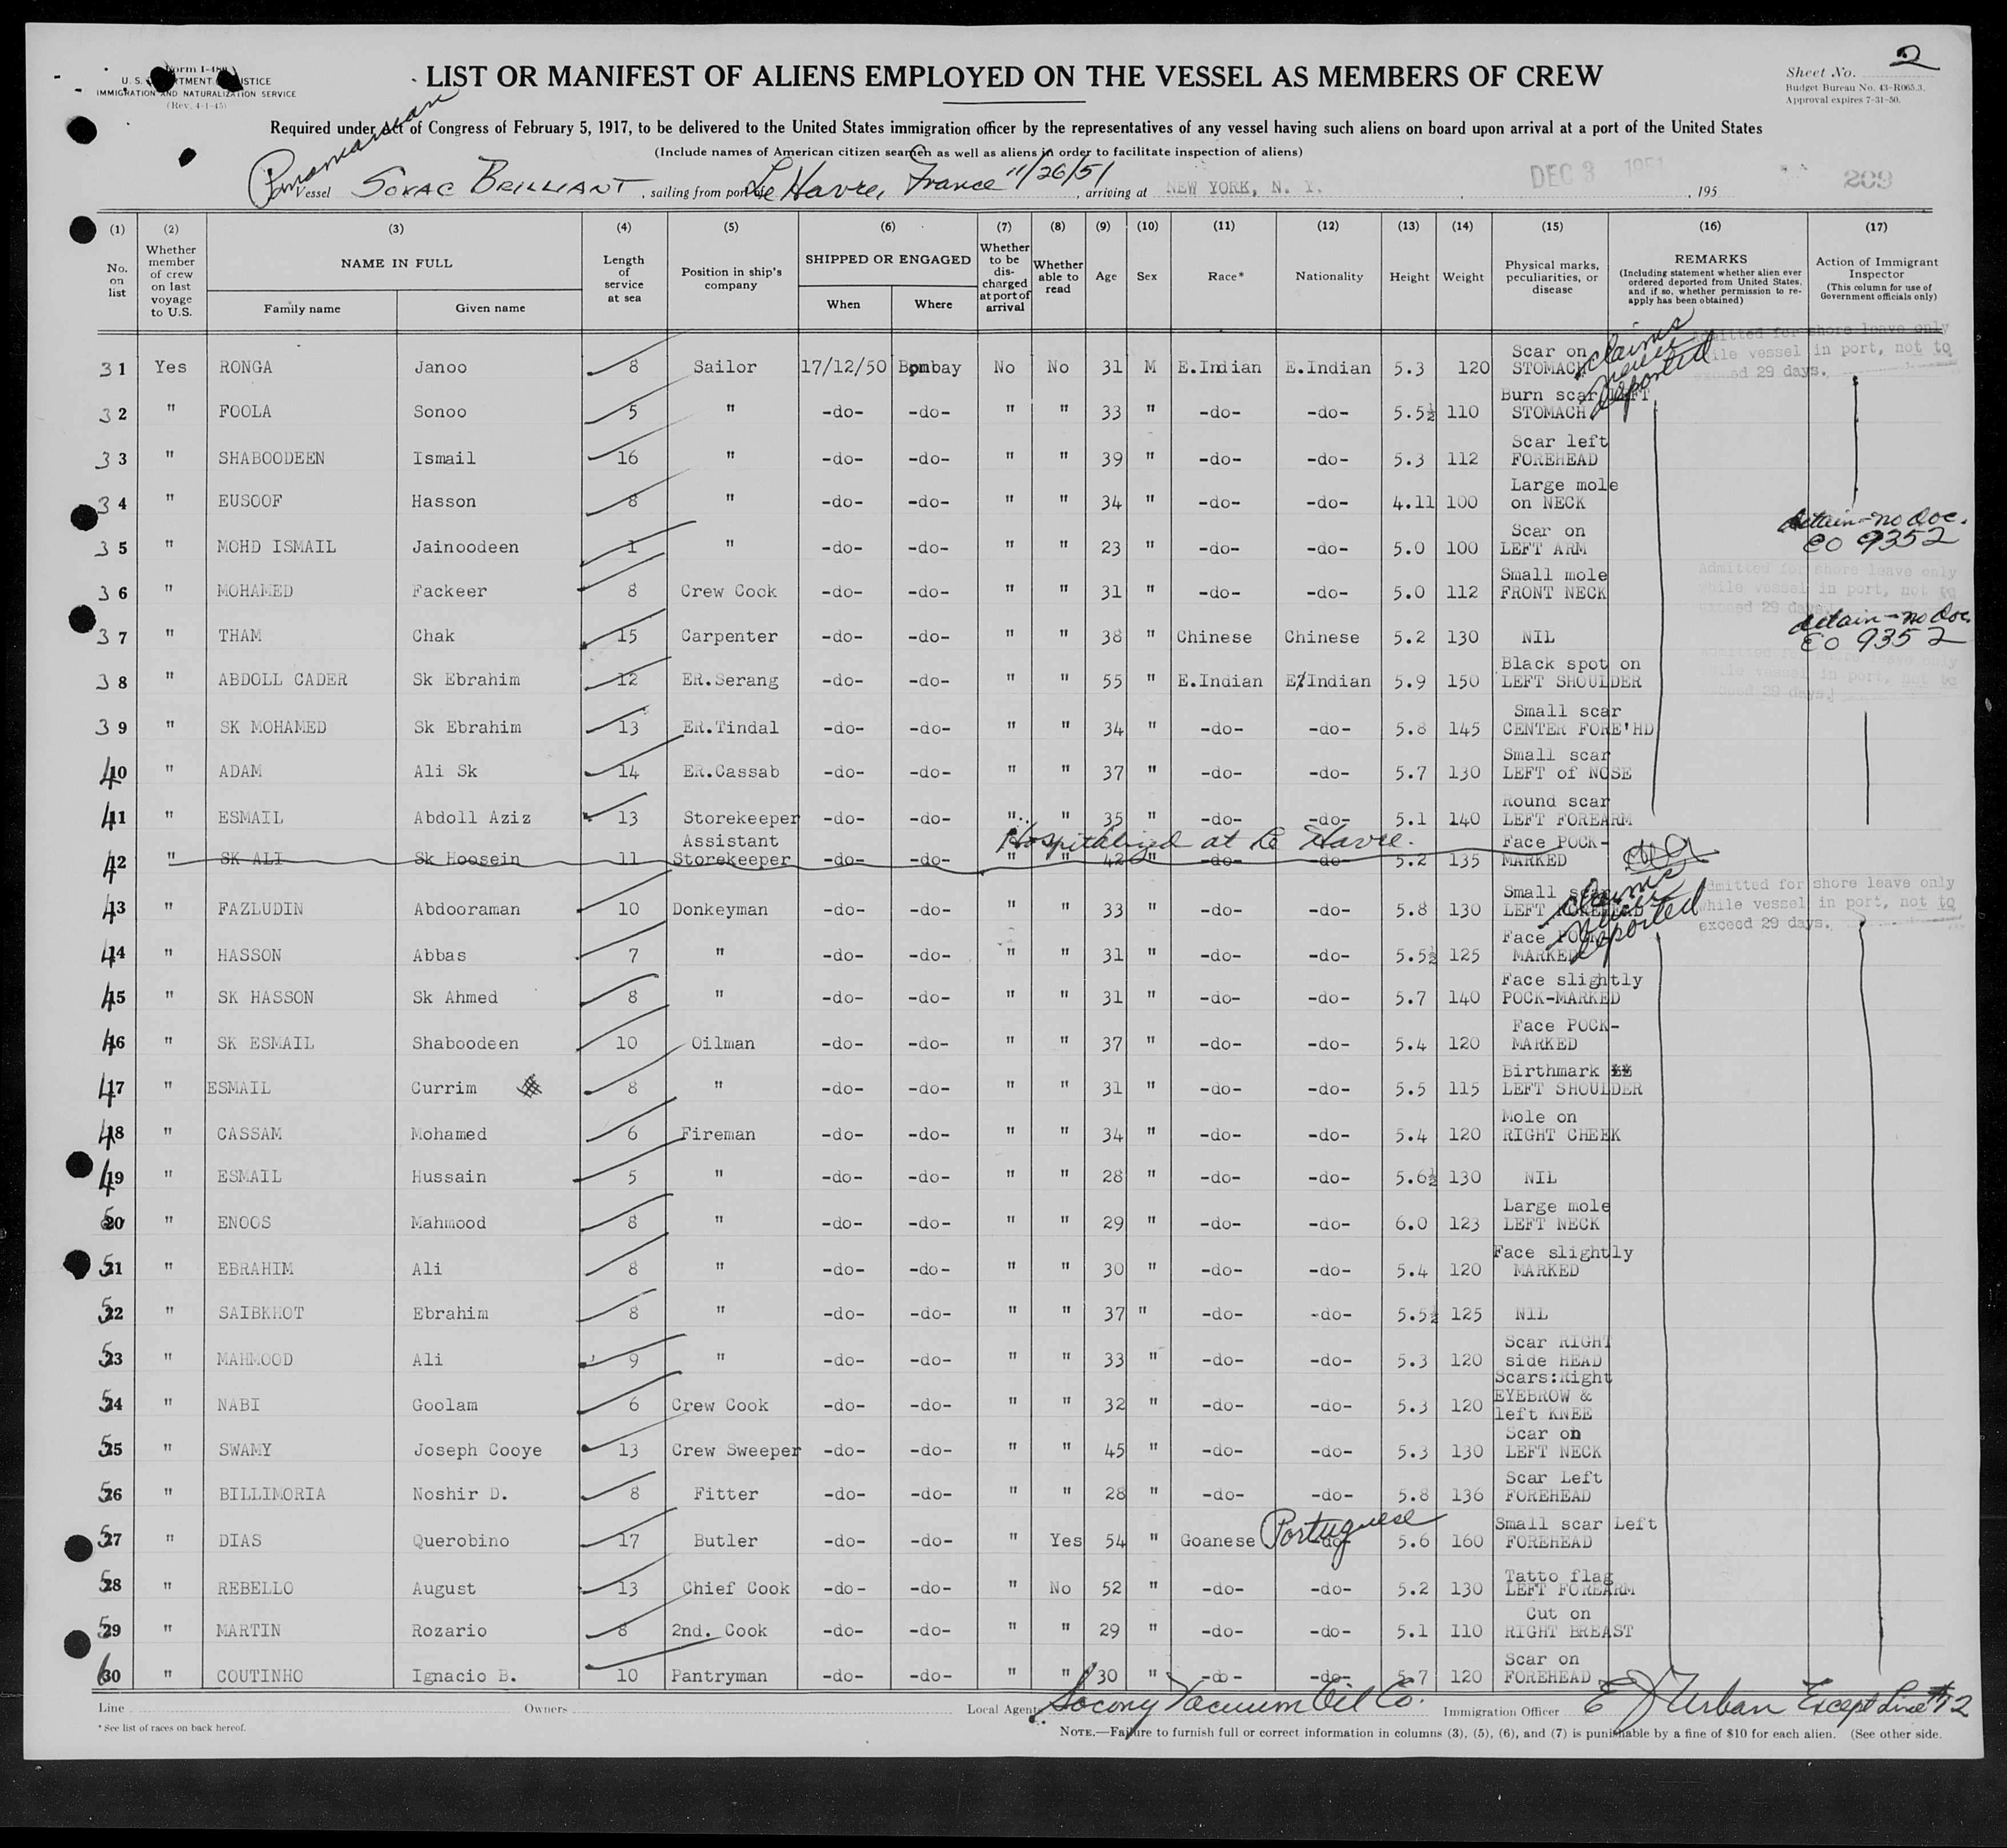 2
Form I-489
U. S. DEPARTMENT OF JUSTICE
IMMIGRATION AND NATURALIZATION SERVICE
(Rev. 4-1-45)
LIST OR MANIFEST OF ALIENS EMPLOYED ON THE VESSEL AS MEMBERS OF CREW
Sheet No.
Budget Bureau No. 43-R065.3.
Approval expires 7-31-50.
Required under Act of Congress of February 5, 1917, to be delivered to the United States immigration officer by the representatives of any vessel having such aliens on board upon arrival at a port of the United States
(Include names of American citizen seamen as well as aliens in order to facilitate inspection of aliens)
Panamanian
Vessel SOVAC BRILLIANT, sailing from port of Le Havre, France 11/26/51, arriving at NEW YORK, N. Y. DEC 3 1951, 195 209
(1) (2) (3) (4) (5) (6) (7) (8) (9) (10) (11) (12) (13) (14) (15) (16) (17)
No. on list
Whether member of crew on last voyage to U.S.
NAME IN FULL
Family name Given name
Length of service at sea
Position in ship's company
SHIPPED OR ENGAGED
When Where
Whether to be discharged at port of arrival
Whether able to read
Age Sex Race* Nationality Height Weight
Physical marks, peculiarities, or disease
REMARKS
(Including statement whether alien ever ordered deported from United States, and if so, whether permission to re-apply has been obtained)
Action of Immigrant Inspector
(This column for use of Government officials only)
31 Yes RONGA Janoo 8 Sailor 17/12/50 Bombay No No 31 M E.Indian E.Indian 5.3 120 Scar on STOMACH claims never deported Admitted for shore leave only while vessel in port, not to exceed 29 days.
32 " FOOLA Sonoo 5 " -do- -do- " " 33 " -do- -do- 5.5½ 110 Burn scar LEFT STOMACH
33 " SHABOODEEN Ismail 16 " -do- -do- " " 39 " -do- -do- 5.3 112 Scar left FOREHEAD
34 " EUSOOF Hasson 8 " -do- -do- " " 34 " -do- -do- 4.11 100 Large mole on NECK
35 " MOHD ISMAIL Jainoodeen 1 " -do- -do- " " 23 " -do- -do- 5.0 100 Scar on LEFT ARM detain-no doc. EO 9352
36 " MOHAMED Fackeer 8 Crew Cook -do- -do- " " 31 " -do- -do- 5.0 112 Small mole FRONT NECK Admitted for shore leave only while vessel in port, not to exceed 29 days.
37 " THAM Chak 15 Carpenter -do- -do- " " 38 " Chinese Chinese 5.2 130 NIL detain-no doc. EO 9352
38 " ABDOLL CADER Sk Ebrahim 12 ER.Serang -do- -do- " " 55 " E.Indian E.Indian 5.9 150 Black spot on LEFT SHOULDER Admitted for shore leave only while vessel in port, not to exceed 29 days.
39 " SK MOHAMED Sk Ebrahim 13 ER.Tindal -do- -do- " " 34 " -do- -do- 5.8 145 Small scar CENTER FORE'HD
40 " ADAM Ali Sk 14 ER.Cassab -do- -do- " " 37 " -do- -do- 5.7 130 Small scar LEFT of NOSE
41 " ESMAIL Abdoll Aziz 13 Storekeeper -do- -do- " " 35 " -do- -do- 5.1 140 Round scar LEFT FOREARM
42 " SK ALI Sk Hoosein 11 Assistant Storekeeper -do- -do- " " 42 " -do- -do- 5.2 135 Face POCK-MARKED
Hospitalized at Le Havre.
43 " FAZLUDIN Abdooraman 10 Donkeyman -do- -do- " " 33 " -do- -do- 5.8 130 Small scar LEFT FOREHEAD claims never deported Admitted for shore leave only while vessel in port, not to exceed 29 days.
44 " HASSON Abbas 7 " -do- -do- " " 31 " -do- -do- 5.5½ 125 Face POCK MARKED
45 " SK HASSON Sk Ahmed 8 " -do- -do- " " 31 " -do- -do- 5.7 140 Face slightly POCK-MARKED
46 " SK ESMAIL Shaboodeen 10 Oilman -do- -do- " " 37 " -do- -do- 5.4 120 Face POCK-MARKED
47 " ESMAIL Currim 8 " -do- -do- " " 31 " -do- -do- 5.5 115 Birthmark LEFT SHOULDER
48 " CASSAM Mohamed 6 Fireman -do- -do- " " 34 " -do- -do- 5.4 120 Mole on RIGHT CHEEK
49 " ESMAIL Hussain 5 " -do- -do- " " 28 " -do- -do- 5.6½ 130 NIL
50 " ENOOS Mahmood 8 " -do- -do- " " 29 " -do- -do- 6.0 123 Large mole LEFT NECK
51 " EBRAHIM Ali 8 " -do- -do- " " 30 " -do- -do- 5.4 120 Face slightly MARKED
52 " SAIBKHOT Ebrahim 8 " -do- -do- " " 37 " -do- -do- 5.5½ 125 NIL
53 " MAHMOOD Ali 9 " -do- -do- " " 33 " -do- -do- 5.3 120 Scar RIGHT side HEAD
54 " NABI Goolam 6 Crew Cook -do- -do- " " 32 " -do- -do- 5.3 120 Scars:Right EYEBROW & left KNEE
55 " SWAMY Joseph Cooye 13 Crew Sweeper -do- -do- " " 45 " -do- -do- 5.3 130 Scar on LEFT NECK
56 " BILLIMORIA Noshir D. 8 Fitter -do- -do- " " 28 " -do- -do- 5.8 136 Scar Left FOREHEAD
57 " DIAS Querobino 17 Butler -do- -do- " Yes 54 " Goanese Portuguese -do- 5.6 160 Small scar Left FOREHEAD
58 " REBELLO August 13 Chief Cook -do- -do- " No 52 " -do- -do- 5.2 130 Tatto flag LEFT FOREARM
59 " MARTIN Rozario 8 2nd. Cook -do- -do- " " 29 " -do- -do- 5.1 110 Cut on RIGHT BREAST
60 " COUTINHO Ignacio B. 10 Pantryman -do- -do- " " 30 " -do- -do- 5.7 120 Scar on FOREHEAD
Line Owners Local Agents Socony Vacuum Oil Co. Immigration Officer E J Urban Except Line #12
* See list of races on back hereof.
NOTE.—Failure to furnish full or correct information in columns (3), (5), (6), and (7) is punishable by a fine of $10 for each alien. (See other side.